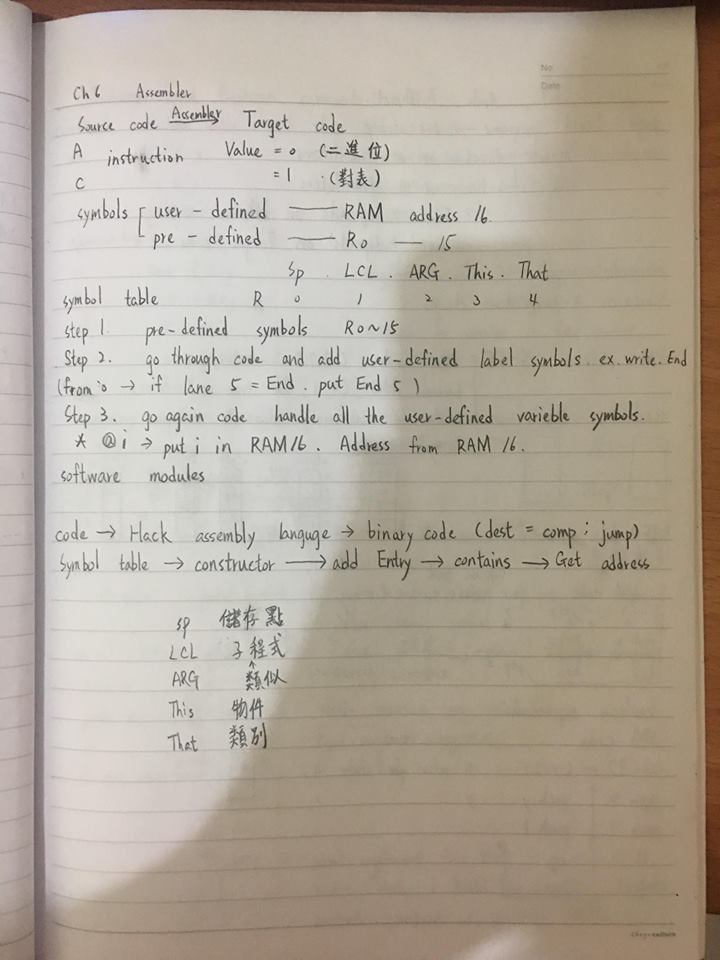 No
Date
Ch 6 Assembler
Source code Assembler → Target code
A instruction Value = 0 (二進位)
C = 1 (對表)
symbols user - defined — RAM address 16.
pre - defined — R0 — 15
Sp . LCL . ARG . This . That
symbol table R 0 1 2 3 4
step 1. pre-defined symbols R0~15
Step 2. go through code and add user-defined label symbols. ex. write. End
(from : 0 → if lane 5 = End . put End 5 )
Step 3. go again code handle all the user-defined varieble symbols.
* @i → put i in RAM16 . Address from RAM 16.
software modules
code → Hack assembly languge → binary code (dest = comp ; jump)
Symbol table → constructor → add Entry → contains → Get address
sp 儲存點
LCL 子程式
ARG 類似
This 物件
That 類別